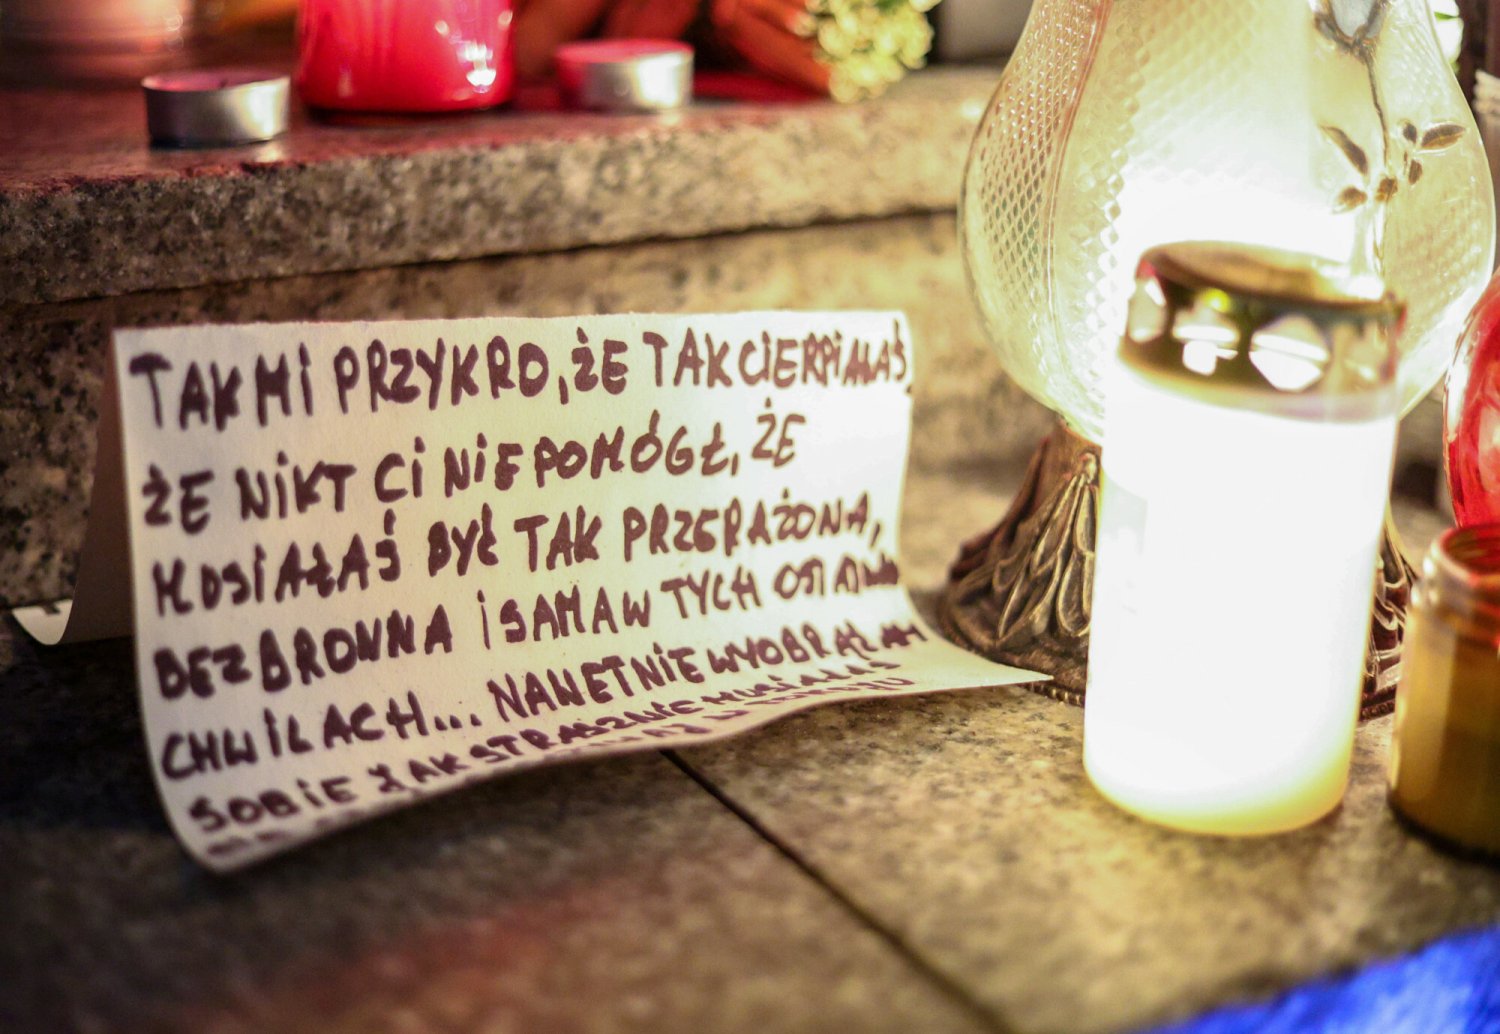 TAK MI PRZYKRO, ŻE TAK CIERPIAŁAŚ
ŻE NIKT CI NIE POMÓGŁ, ŻE
MUSIAŁAŚ BYĆ TAK PRZERAŻONA,
BEZBRONNA i SAMA W TYCH OSTATNICH
CHWILACH... NAWET NIE WYOBRAŻAM
SOBIE JAK STRASZNIE MUSIAŁAŚ